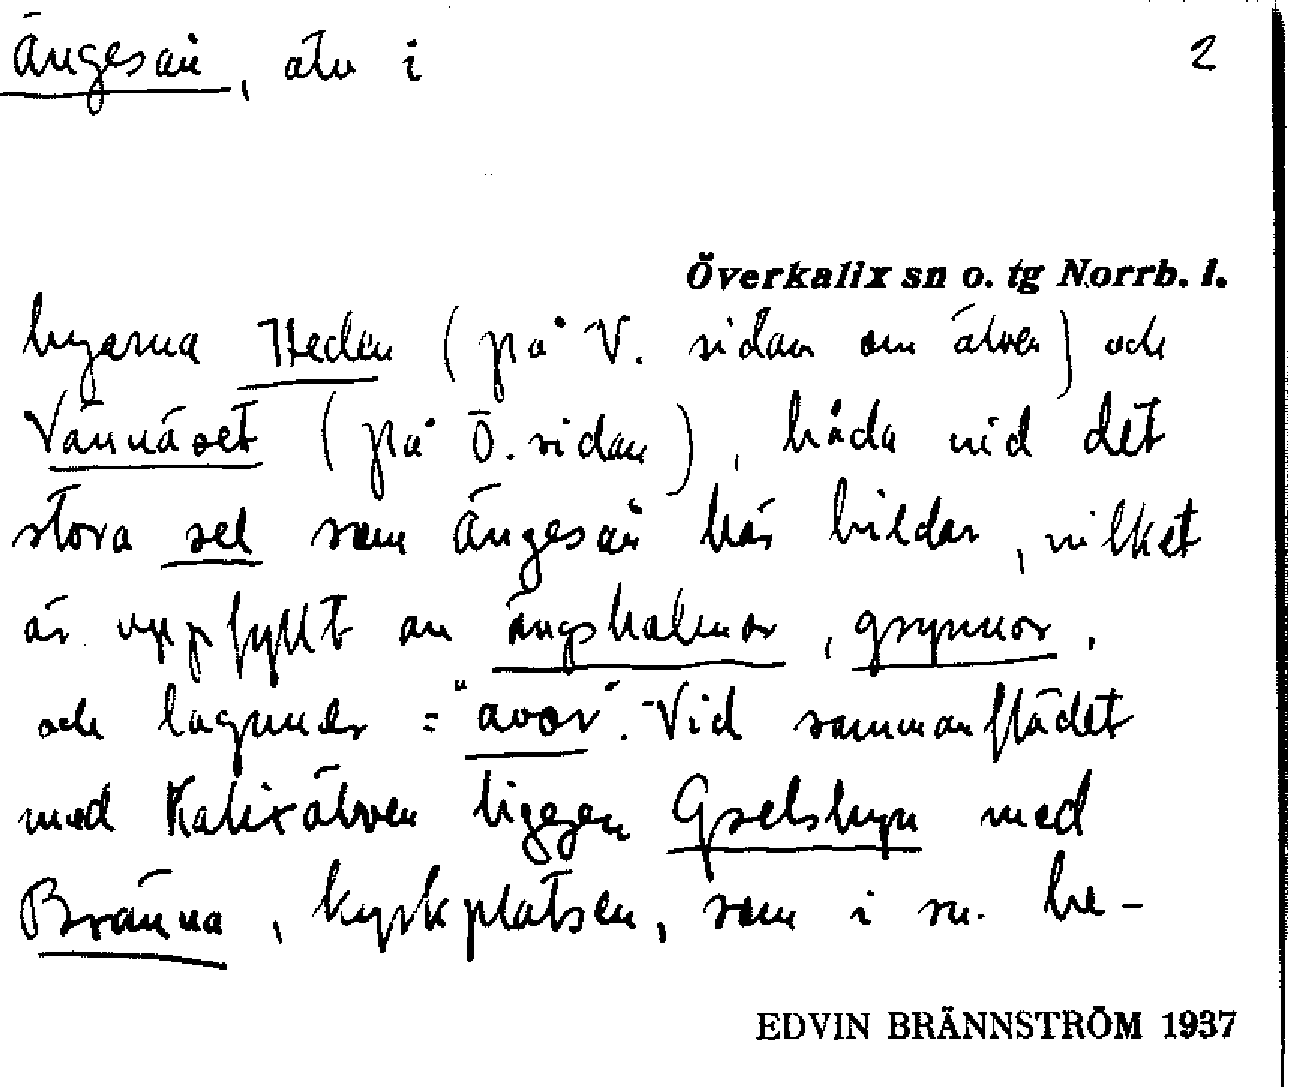 Ängesån, älv i 2
Överkalix sn o. tg Norrb. l.
byarna Heden (på V. sidan om älven) och
Vännäset (på Ö. sidan), båda vid det
stora sel som Ängesån här bildar, vilket
är uppfyllt av ängsholmar, grynnor,
och laguner = "avor". Vid sammanflödet
med Kalixälven ligger Grelsbyn med
Bränna, kyrkplatsen, som i sn. be-
EDVIN BRÄNNSTRÖM 1937